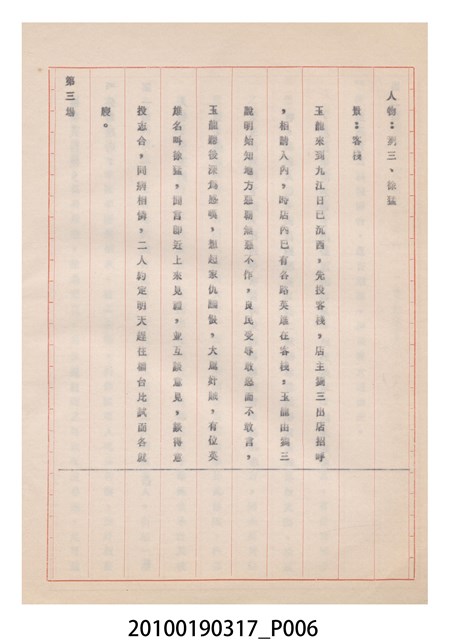 人物:劉三、徐猛
景:客棧
玉龍來到九江日已沉西,先投客棧,店主劉三出店招呼
,相請入內,時店內已有各路英雄在客棧,玉龍由劉三
說明始知地方惡霸無惡不作,良民受辱敢怒而不敢言,
玉龍聽後深為感嘆,想起家仇難報,大罵奸賊,有位英
雄名叫徐猛,聞言即近上來見禮,並互談意見,談得意
投志合,同病相憐,二人約定明天逕往擂台比試而各就
寢。
第三場
20100190317_P006